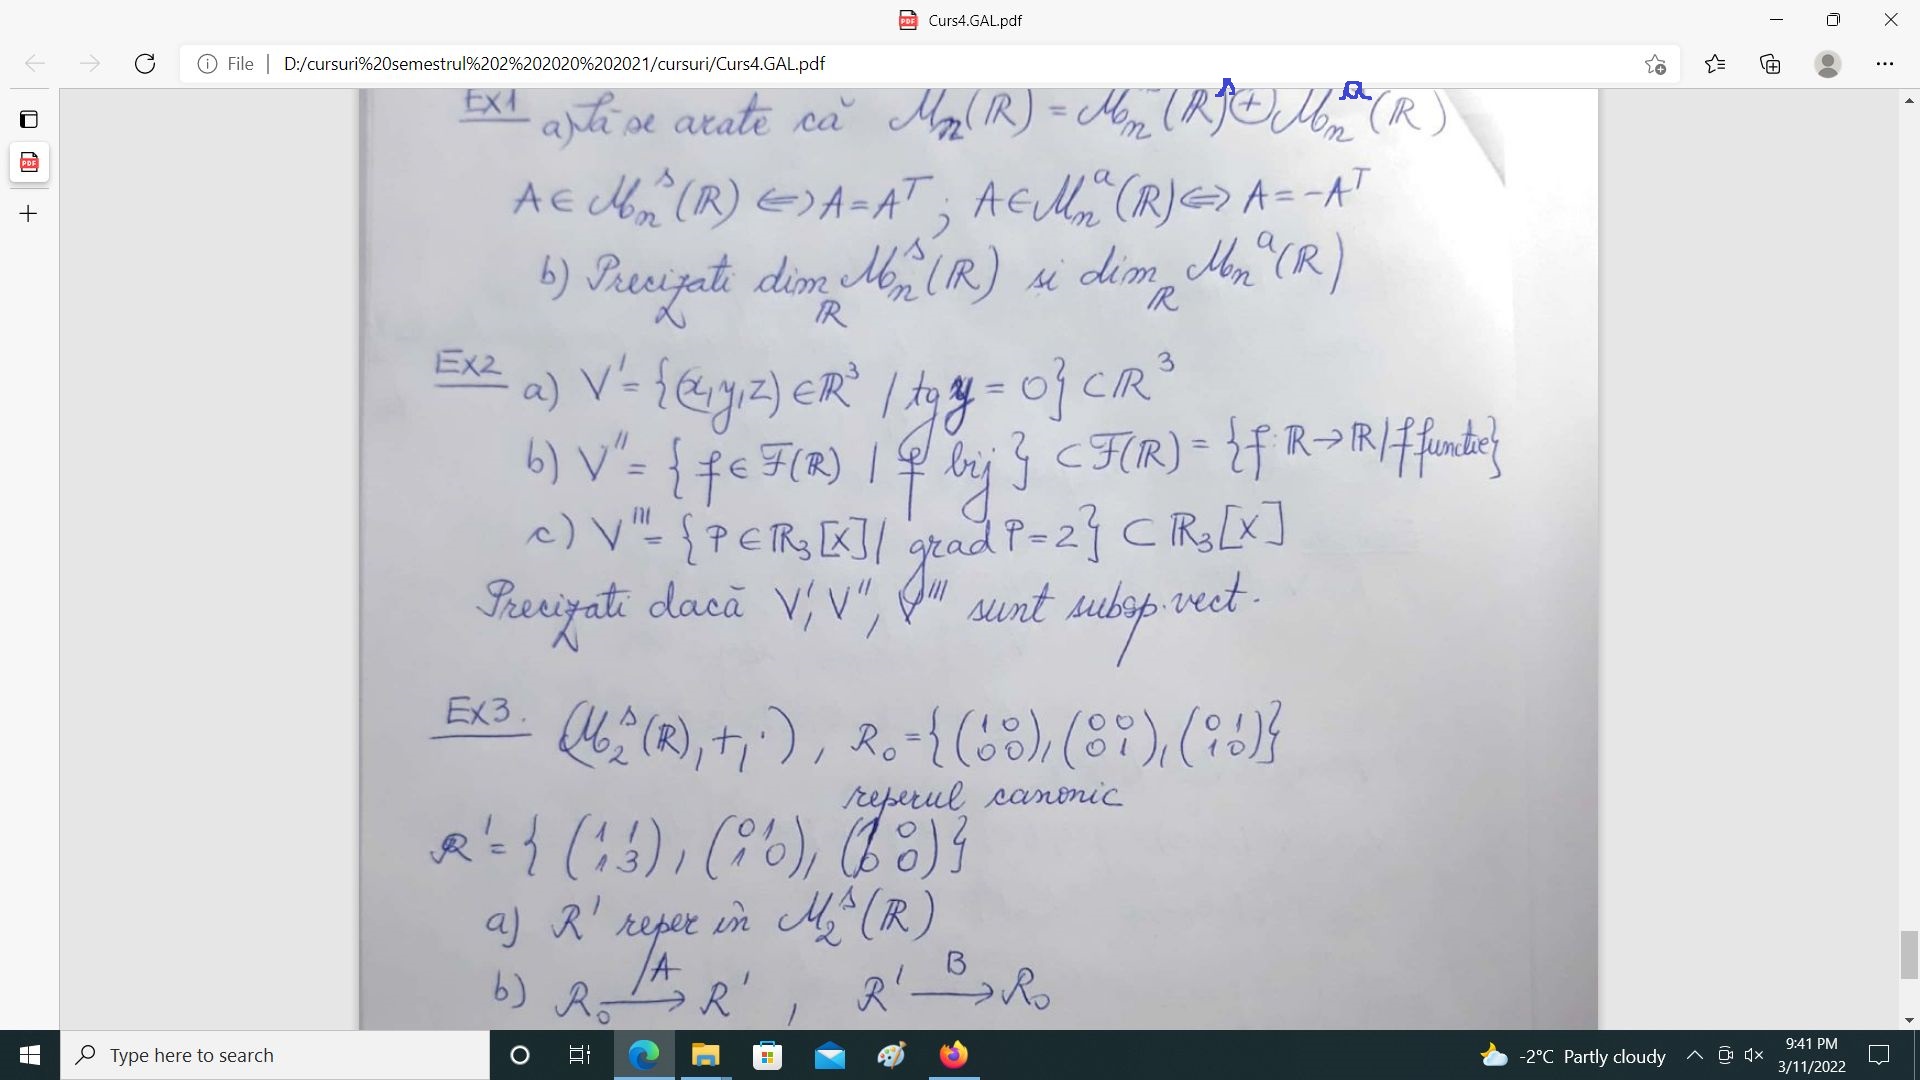 Curs4.GAL.pdf
File | D:/cursuri%20semestrul%202%202020%202021/cursuri/Curs4.GAL.pdf
Ex1 a) Să se arate că Mn(R) = Mn^s(R) ⊕ Mn^a(R)
A ∈ Mn^s(R) ⇔ A = A^T ; A ∈ Mn^a(R) ⇔ A = -A^T
b) Precizați dim_R Mn^s(R) si dim_R Mn^a(R)
Ex2 a) V' = {(x,y,z) ∈ R^3 / tg y = 0} ⊂ R^3
b) V'' = { f ∈ F(R) | f bij } ⊂ F(R) = {f: R → R | f functie}
c) V''' = { P ∈ R3[X] | grad P = 2} ⊂ R3[X]
Precizați dacă V', V'', V''' sunt subsp. vect.
Ex3. (M2^s(R), +, ·), R0 = {(1 0 / 0 0), (0 0 / 0 1), (0 1 / 1 0)}
reperul canonic
R' = { (1 1 / 1 3), (0 1 / 1 0), (1 0 / 0 0)}
a) R' reper in M2^s(R)
b) R0 —A→ R' , R' —B→ R0
Type here to search
-2°C Partly cloudy
9:41 PM
3/11/2022